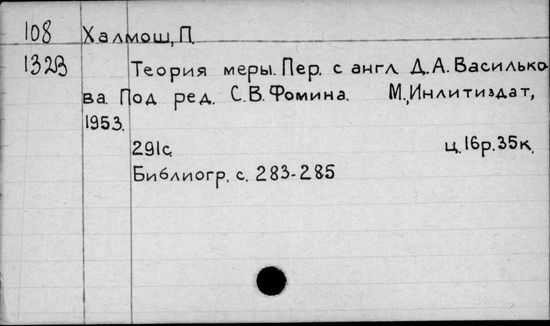 108 Халмош, П.
1323 Теория меры. Пер. с англ. Д.А. Василько
ва. Под ред. С.В. Фомина. М., Инлитиздат,
1953.
291с. ц. 16р. 35к.
Библиогр. с. 283-285